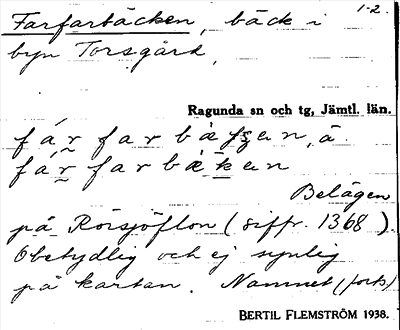 1-2.
Farfarbäcken, bäck i
byn Torsgård,
Ragunda sn och tg, Jämtl. län.
fár farbäꞩꞩen, ä
fár farbäken
Belägen
på Rörsjöflon (siffr. 1368).
Obetydlig och ej synlig
på kartan. Namnet (forts)
BERTIL FLEMSTRÖM 1938.